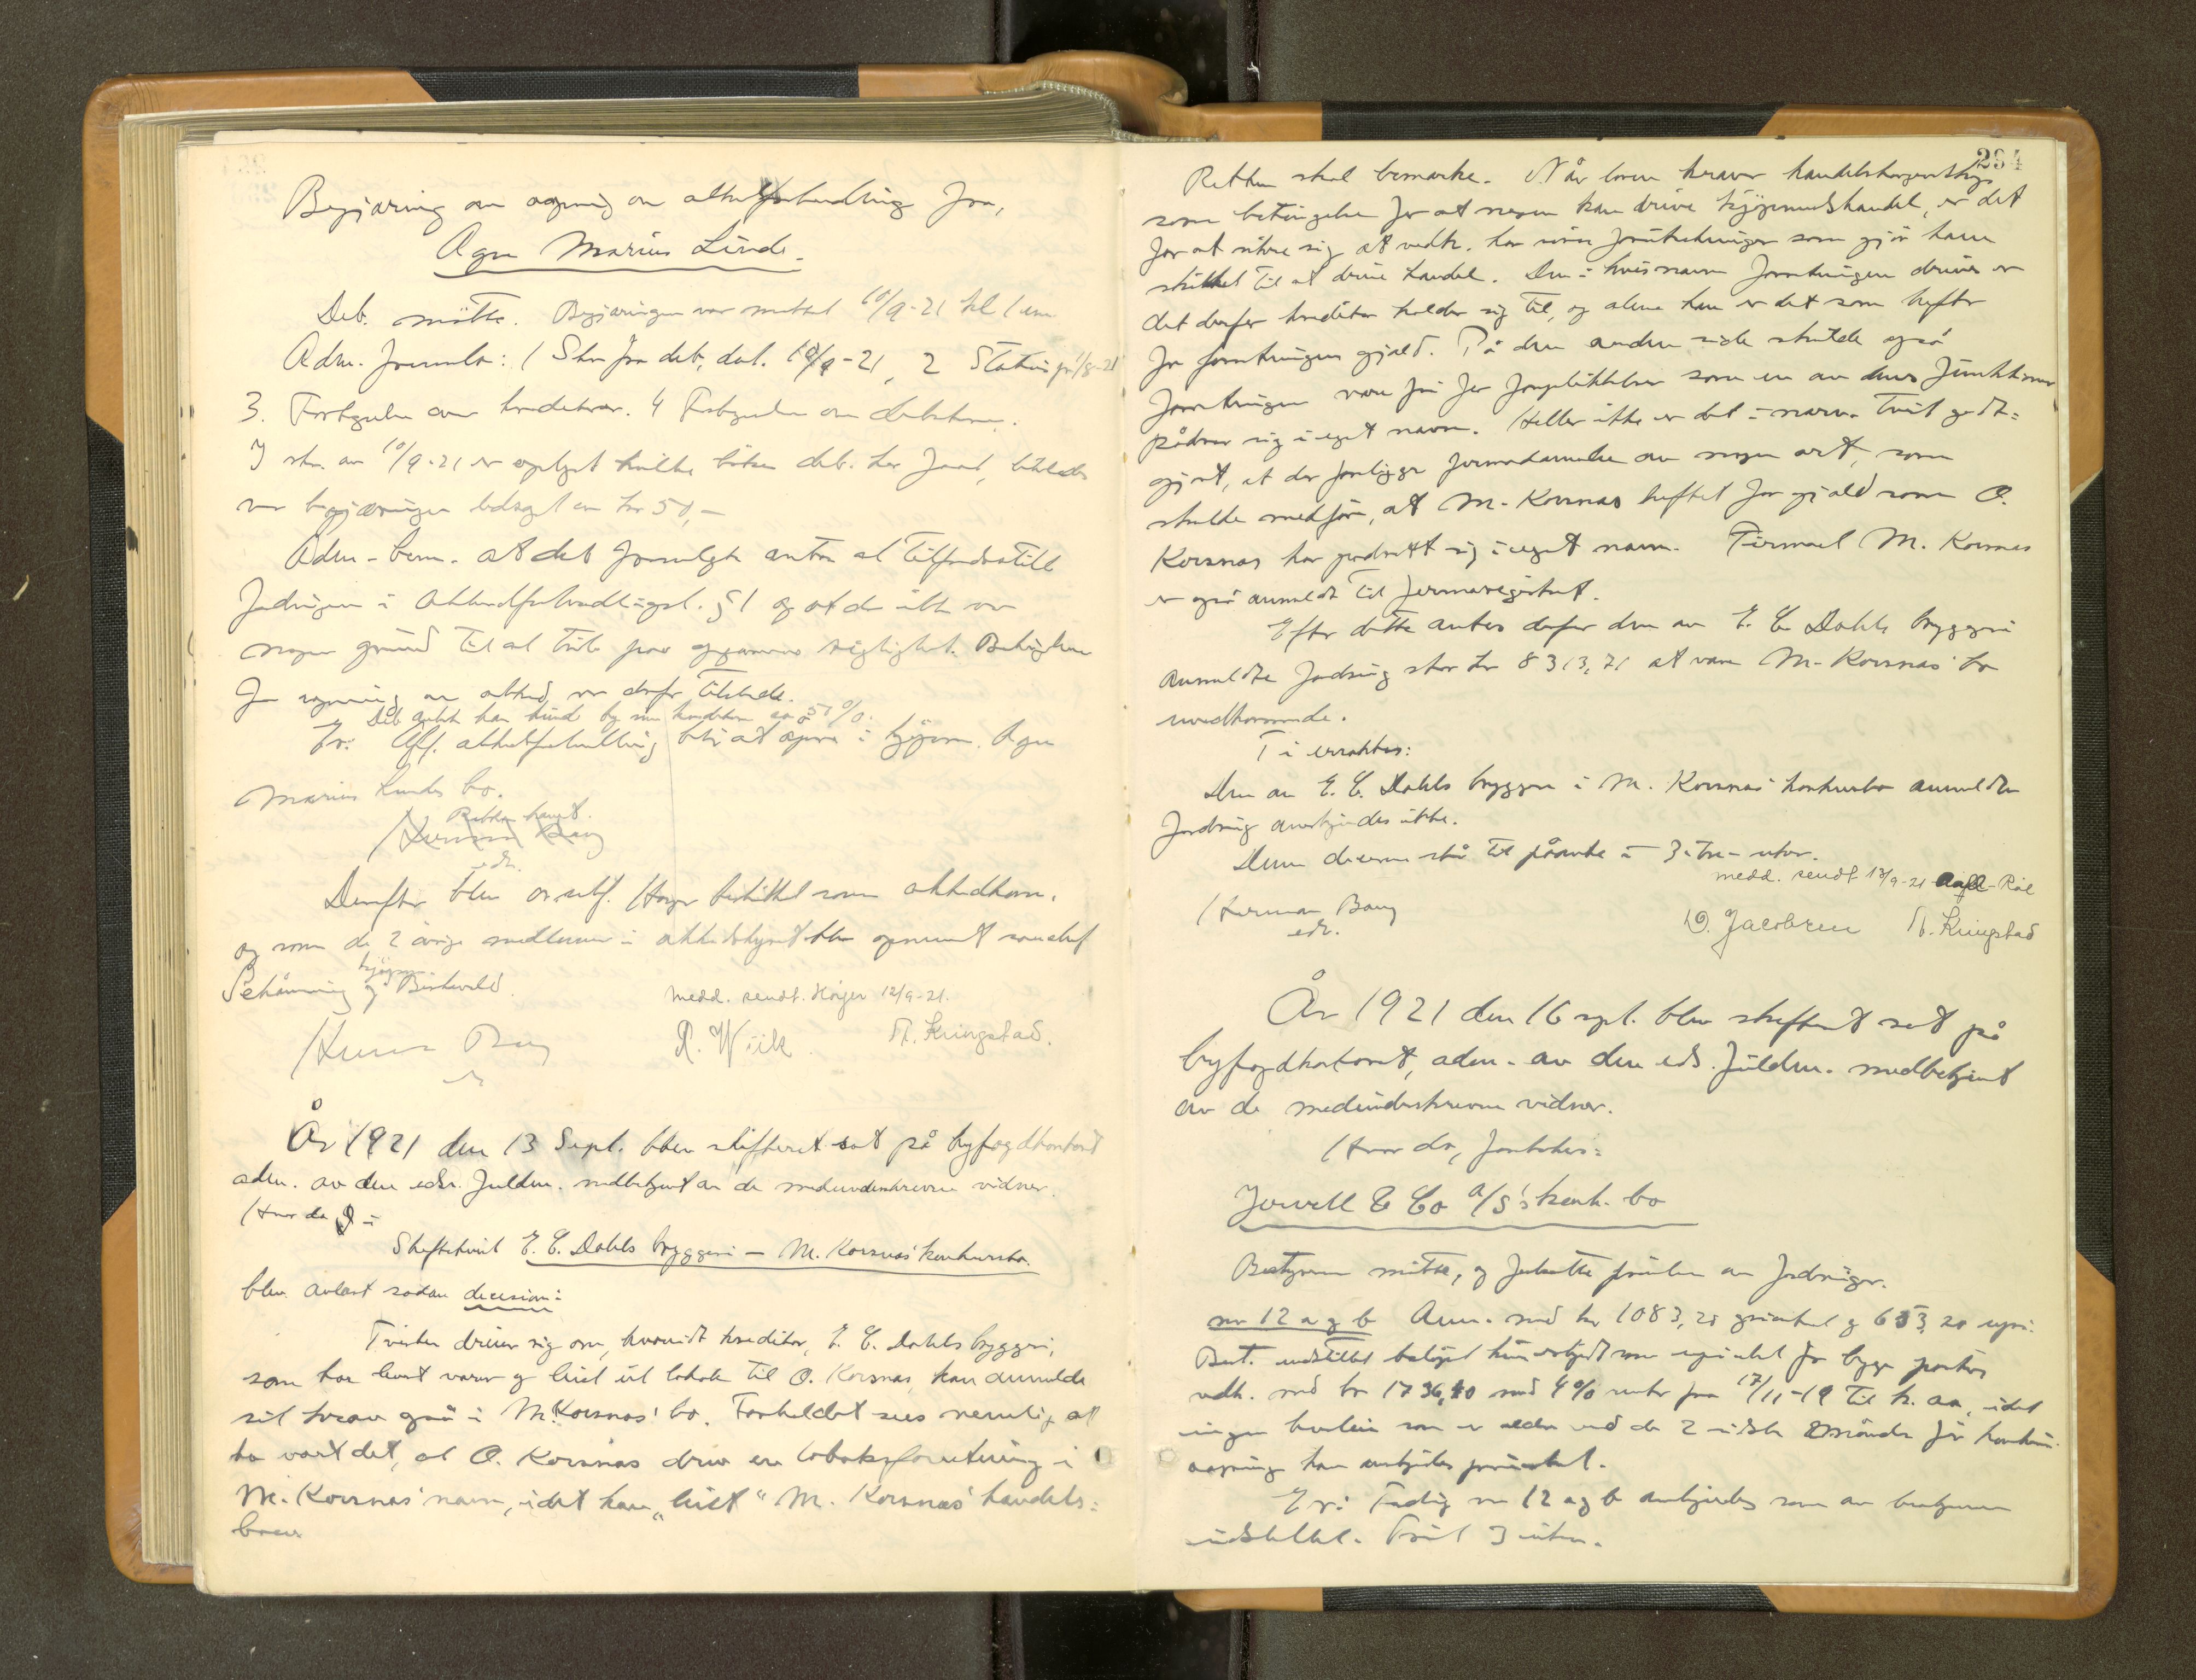 Begjæring om aapning av akkordforhandling fra,
Aage Marius Linde.
Deb. møtte. Begjæringen var mottat 10/9-21 kl 1 em
Adm. fremla: 1 Skr fra deb. dat. 10/9-21, 2 Status pr 1/8-21
3. Fortegnelse over kreditorer. 4 Fortegnelse over debitorer.
I skr. av 10/9-21 er oplyst hvilke bøker deb. har ført, likeledes
var begjæringen ledsaget av kr 50,-
Adm. bem. at det fremlagte antas at tilfredsstille
fordringen i akkordforhandlingsl. § 1 og at der ikke var
nogen grund til at tvile paa opgavens rigtighet. Betingelsen
for aapning av akkord var derfor tilstede.
Deb. antok han kunde by sine kreditorer ca 50%.
Er: Off. akkordforhandling blir at åpne i kjøpm. Aage
Marius Lindes bo.
Retten hævet.
Herman Bang
edr.
Derefter blev or.sakf. Høyer beskikket som akkordkom.
og som de 2 øvrige medlemmer i akkordstyret blev opnævnt
og kjøpm. Birkeveld.
medd. sendt. Höyer 12/9-21.
Herman Bang R. Wiik N. Kringstad.
edr.
År 1921 den 13 Sept. blev skifteret sat på byfogdkontoret
adm. av den edsv. fuldm. medbetjent av de medunderskrevne vidner.
Hvor da I =
Skiftetvist E. C. Dahls bryggeri – M. Korsnæs' konkursbo.
blev avlæst sådan decision:
Tvisten dreier sig om, hvorvidt kreditor, E. C. Dahls bryggeri,
som har levert varer og leiet ut lokale til O. Korsnæs, kan anmelde
sit krav også i M. Korsnæs' bo. Forholdet sees nemlig at
ha vært det, at O. Korsnæs drev en tobaksforretning i
M. Korsnæs' navn, idet han „leiet" M. Korsnæs' handels=
brev
264
Retten skal bemerke. Når loven kræver handelsborgerskap
som betingelse for at nogen kan drive kjøpmandshandel, er det
for at sikre sig at vedk. har visse forutsetninger som gjør ham
skikket til at drive handel. Den i hvis navn forretningen drives er
det derfor kreditor holder sig til, og alene han er det som hefter
for forretningens gjæld. På den anden side skulde også
forretningen være fri for forpliktelser som en av dens funktionær
pådrar sig i eget navn. Heller ikke er det i nærv. tvist godt=
gjort, at der foreligger firmadannelse av nogen art, som
skulde medføre, at M. Korsnæs heftet for gjæld som O.
Korsnæs har pådratt sig i eget navn. Firmaet M. Korsnæs
er også anmeldt til firmaregistret.
Efter dette antas derfor den av E. C. Dahls bryggeri
anmeldte fordring stor kr 8313,71 at være M. Korsnæs' bo
uvedkommende.
Ti eragtes:
Den av E. C. Dahls bryggeri i M. Korsnæs' konkursbo anmeldte
fordring anerkjendes ikke.
Denne decision står til påanke i 3-tre- uker.
medd. sendt 13/9-21
Herman Bang O. Jacobsen N. Kringstad
edr.
År 1921 den 16 sept. blev skifteret sat på
byfogdkontoret, adm. av den eds. fuldm. medbetjent
av de medunderskrevne vidner.
Hvor da, foretokes:
Jowell & Co A/S's konk. bo
Bestyreren møtte, og fortsatte prøvelsen av fordringer.
nr 12 a og b Anm. med kr 1083,20 prioritert og 653,20 upri.
Best. indstillet beløpet kun erkjendt som uprioritert for begge poster
vedk. med kr 1736,40 med 4% renter fra 17/11-19 til k. aa, idet
ingen husleie som er ældre end de 2 sidste måneder før konkurs=
aapning kan erkjendes prioritert.
Er: Fordring nr 12 a og b anerkjendes som av bestyreren
indstillet. Frist 3 uker.